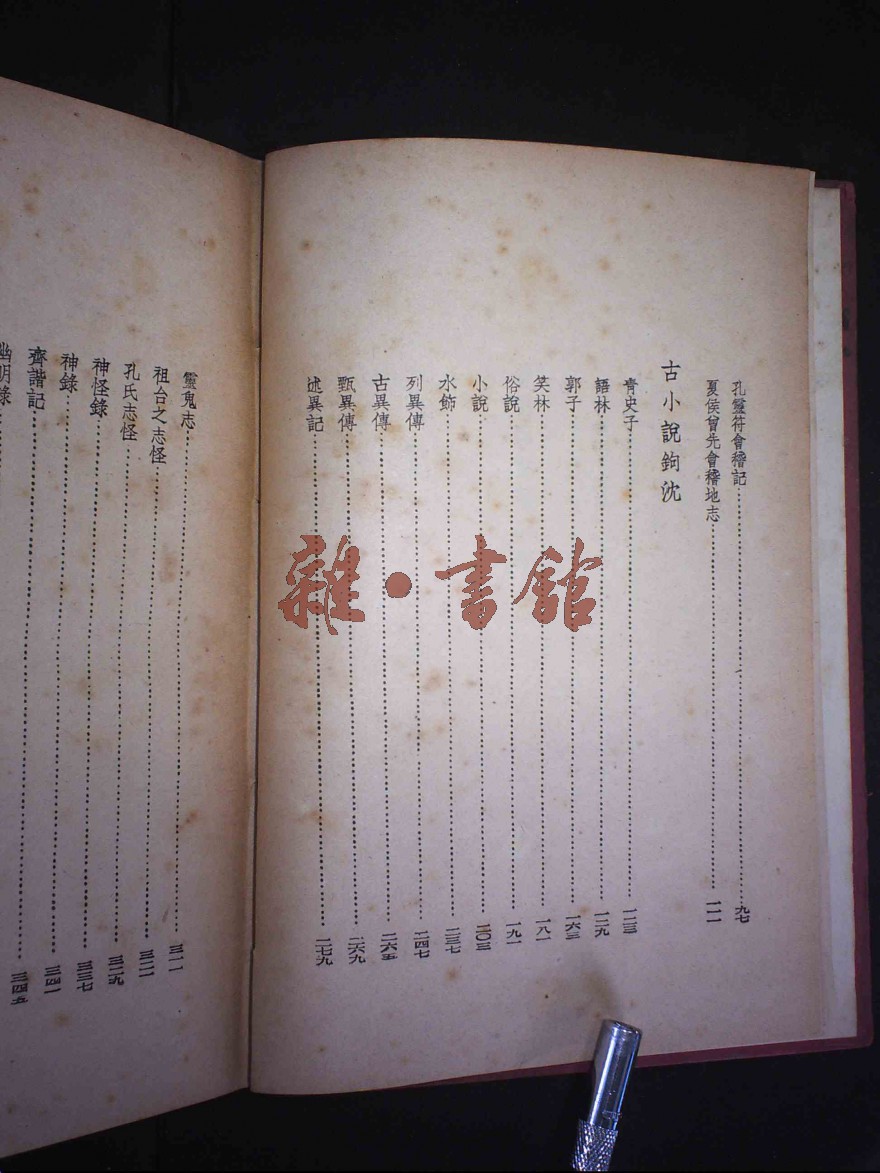 孔靈符會稽記 九七
夏侯曾先會稽地志 一一一
古小說鉤沈
青史子 一二三
語林 一二九
郭子 一六三
笑林 一八一
俗說 一九一
小說 二〇三
水飾 二三七
列異傳 二四七
古異傳 二六五
甄異傳 二六九
述異記 二七九
靈鬼志 三一一
祖台之志怪 三二一
孔氏志怪 三二九
神怪錄 三三七
神錄 三四一
齊諧記 三四五
幽明錄
雜·書館